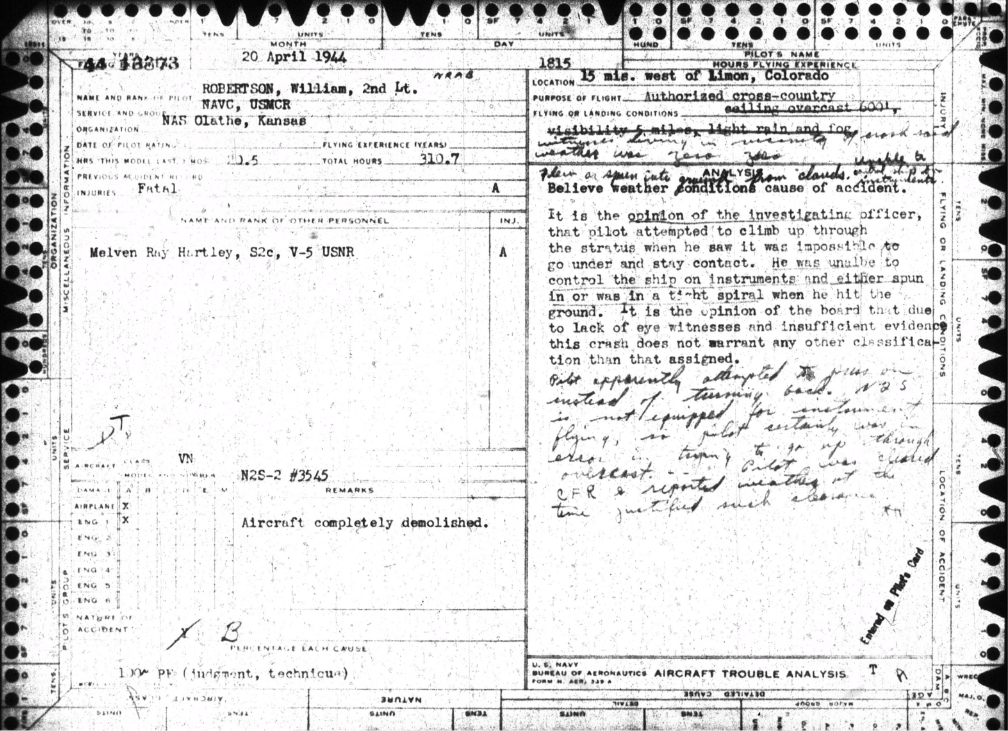 TENS UNITS TENS UNITS HUND TENS UNITS
MONTH DAY PILOT'S NAME
HOURS FLYING EXPERIENCE
20 April 1944 1815
NRAB
NAME AND RANK OF PILOT ROBERTSON, William, 2nd Lt.
SERVICE AND GROUP NAVC, USMCR
ORGANIZATION NAS Olathe, Kansas
DATE OF PILOT RATING FLYING EXPERIENCE (YEARS)
HRS THIS MODEL LAST 3 MOS. .5 TOTAL HOURS 310.7
PREVIOUS ACCIDENT RECORD
INJURIES Fatal A
NAME AND RANK OF OTHER PERSONNEL INJ.
Melven Ray Hartley, S2c, V-5 USNR A
AIRCRAFT CLASS VN
MODEL AND NUMBER N2S-2 #3545
DAMAGE REMARKS
AIRPLANE X
ENG 1 X Aircraft completely demolished.
ENG 2
ENG 3
ENG 4
ENG 5
ENG 6
NATURE OF
ACCIDENT X B
PERCENTAGE EACH CAUSE
100% PE (judgment, technique)
LOCATION 15 mis. west of Limon, Colorado
PURPOSE OF FLIGHT Authorized cross-country
FLYING OR LANDING CONDITIONS ceiling overcast 600',
visibility 5 miles, light rain and fog
witness living in vicinity of crash said
weather was zero zero
unable to
flew or spun into ground from clouds. control ship on instruments
ANALYSIS
Believe weather conditions cause of accident.
It is the opinion of the investigating officer,
that pilot attempted to climb up through
the stratus when he saw it was impossible to
go under and stay contact. He was unalbe to
control the ship on instruments and either spun
in or was in a tight spiral when he hit the
ground. It is the opinion of the board that due
to lack of eye witnesses and insufficient evidence
this crash does not warrant any other classifica-
tion than that assigned.
Pilot apparently attempted to press on
instead of turning back. N2S
is not equipped for instrument
flying, so pilot certainly was in
error in trying to go up through
overcast. Pilot was cleared
CFR & reported weather at the
time justified such clearance.
Entered on Pilot's Card
U. S. NAVY
BUREAU OF AERONAUTICS AIRCRAFT TROUBLE ANALYSIS T
FORM N. AER. 339 A
MISCELLANEOUS INFORMATION
ORGANIZATION
SERVICE
PILOT'S GROUP
INJURY
FLYING OR LANDING CONDITIONS
LOCATION OF ACCIDENT
NATURE
DETAILED CAUSE
DETAIL
MAJOR GROUP